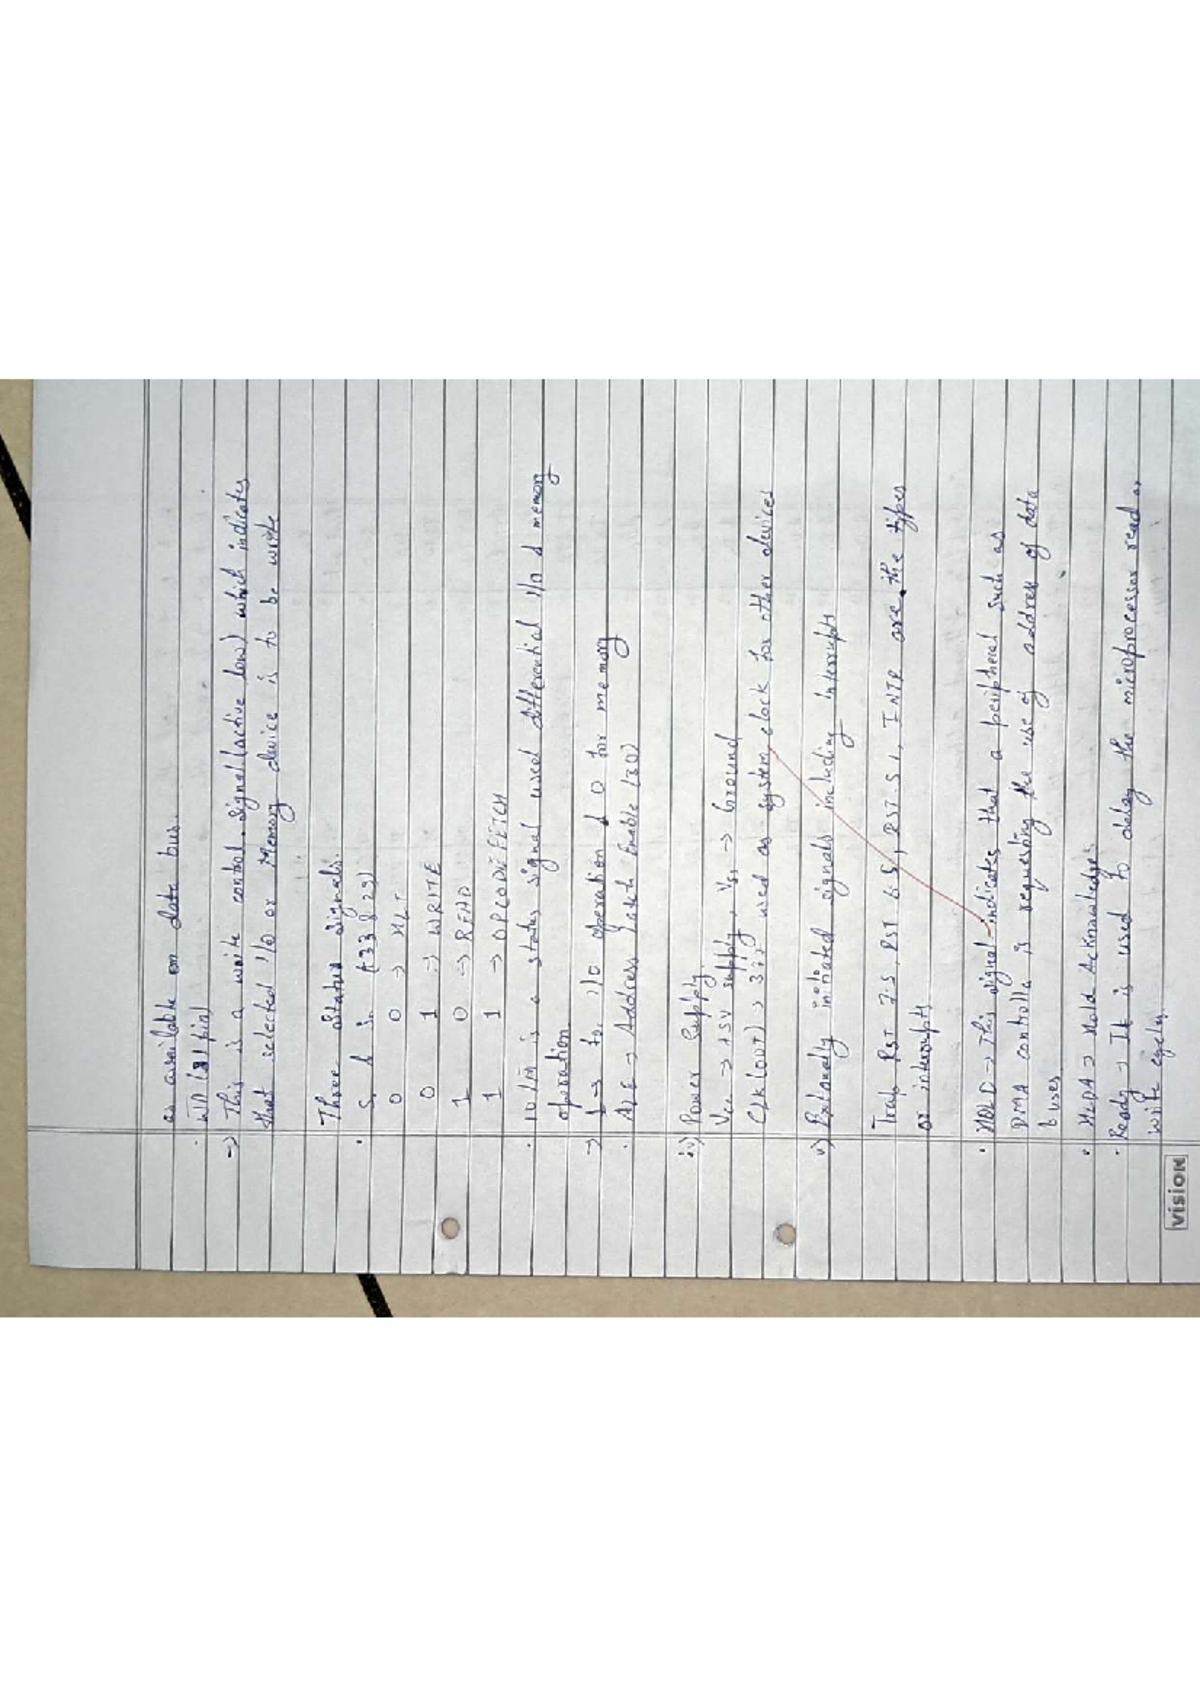 as available on data bus.
· WR (31 pin)
→ This is a write control signal (active low) which indicates
that selected I/O or Memory device is to be write
Three status signals.
· S, & in (33 & 29)
0 0 → HLT
0 1 → WRITE
1 0 → READ
1 1 → OPCODE FETCH
· IO/M is a status signal used differential I/O & memory
operation
→ 1 → to I/O operation & 0 for memory
· ALE → Address Latch Enable (30)
iv) Power Supply
Vcc → +5V supply, Vss → Ground
CLK(OUT) → 37 used as system clock for other devices
v) Externally initiated signals including Interrupts
Trap RST 7.5, RST 6.5, RST 5.5, INTR are the types
of interrupts
· HOLD → This signal indicates that a peripheral such as
DMA controlla is requesting the use of address of data
buses
· HLDA → Hold Acknowledges
· Ready → It is used to delay the microprocessor read or
write cycles
VISION